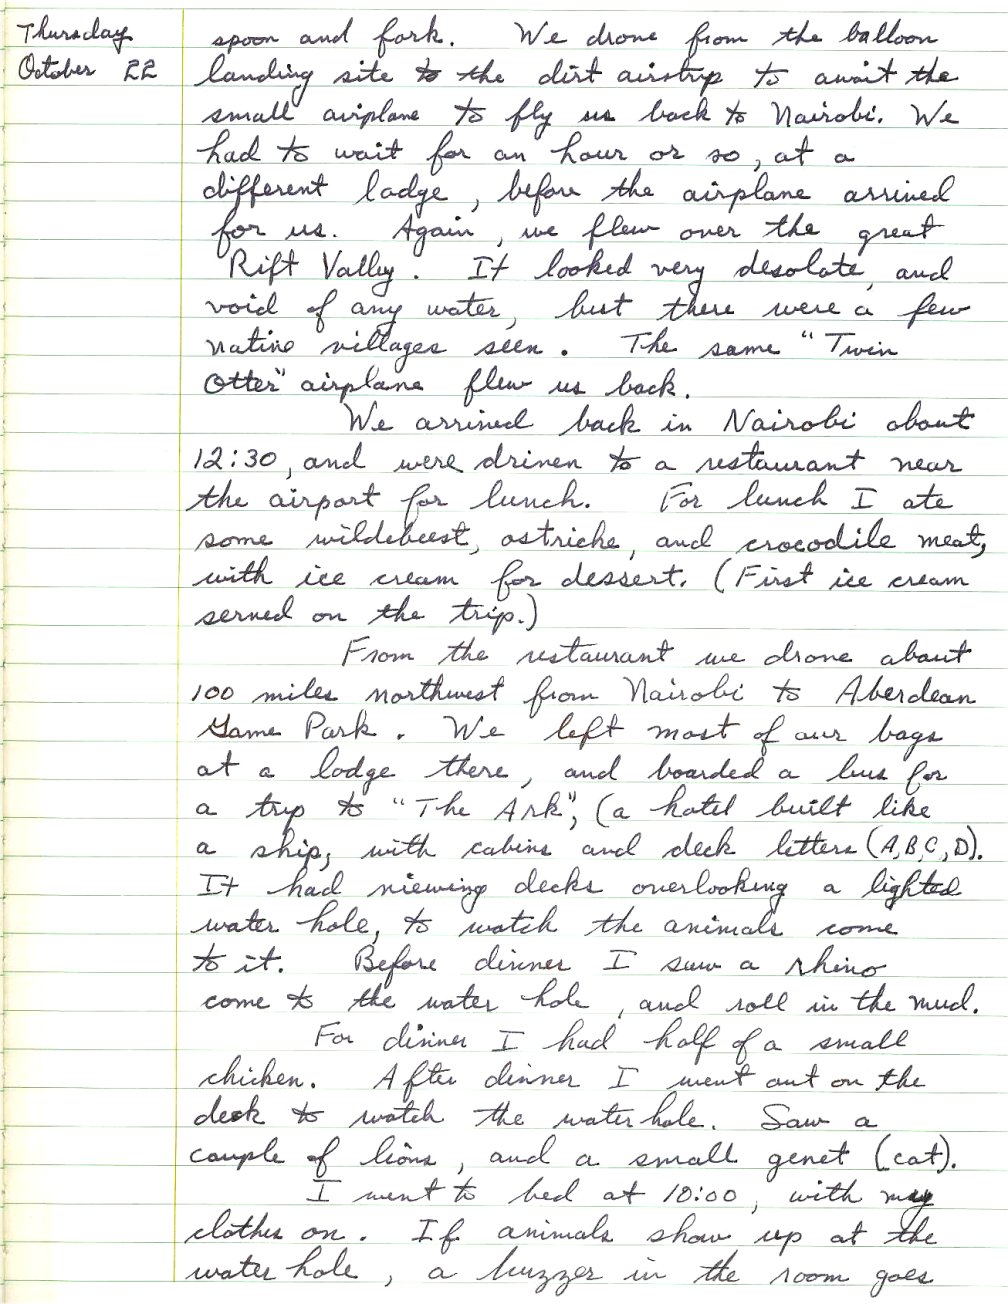 Thursday
October 22
spoon and fork. We drove from the balloon
landing site to the dirt airstrip to await the
small airplane to fly us back to Nairobi. We
had to wait for an hour or so, at a
different lodge, before the airplane arrived
for us. Again, we flew over the great
Rift Valley. It looked very desolate, and
void of any water, but there were a few
native villages seen. The same "Twin
Otter" airplane flew us back.
We arrived back in Nairobi about
12:30, and were driven to a restaurant near
the airport for lunch. For lunch I ate
some wildebeest, ostriche, and crocodile meat,
with ice cream for dessert. (First ice cream
served on the trip.)
From the restaurant we drove about
100 miles northwest from Nairobi to Aberdean
Game Park. We left most of our bags
at a lodge there, and boarded a bus for
a trip to "The Ark", (a hotel built like
a ship, with cabins and deck letters (A,B,C,D).
It had viewing decks overlooking a lighted
water hole, to watch the animals come
to it. Before dinner I saw a rhino
come to the water hole, and roll in the mud.
For dinner I had half of a small
chicken. After dinner I went out on the
deck to watch the waterhole. Saw a
couple of lions, and a small genet (cat).
I went to bed at 10:00, with my
clothes on. If animals show up at the
water hole, a buzzer in the room goes